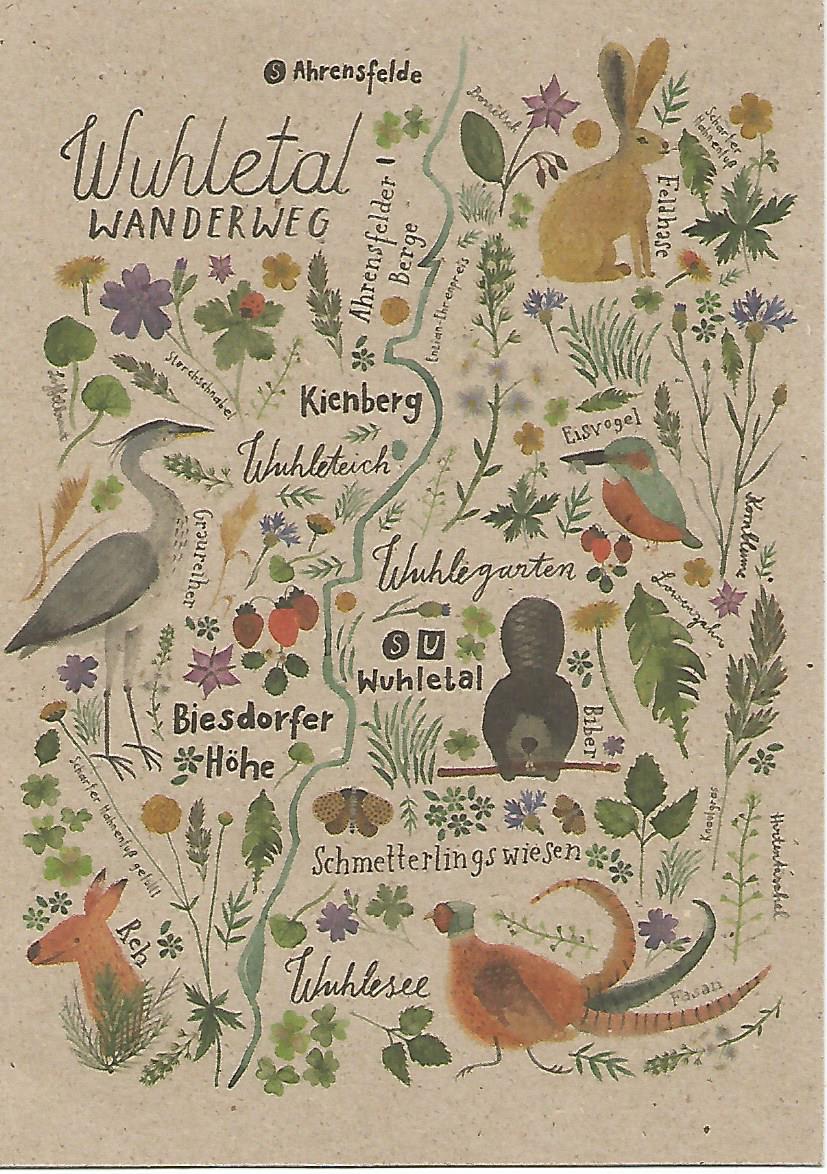 S Ahrensfelde
Wuhletal
WANDERWEG
Ahrensfelder
Berge
Borretsch
Scharfer
Hahnenfuß
Feldhase
Enzian-Ehrenpreis
Storchschnabel
Löffelkraut
Kienberg
Wuhleteich
Eisvogel
Graureiher
Kornblume
Wuhlegarten
Löwenzahn
S U
Wuhletal
Biber
Biesdorfer
Höhe
Scharfer Hahnenfuß gefüllt
Knaulgras
Hirtentäschel
Schmetterlingswiesen
Reh
Wuhlesee
Fasan